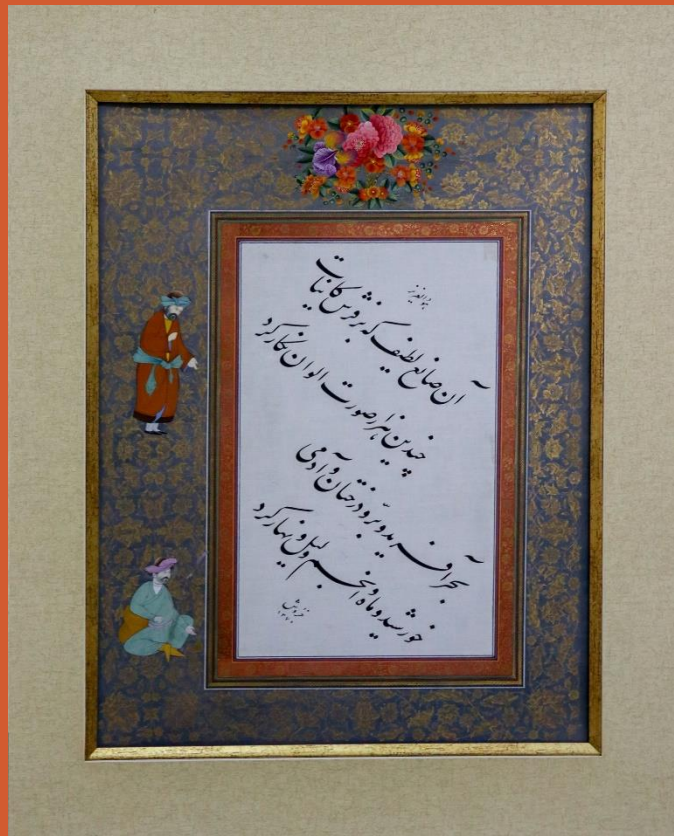 هوالعزیز
آن صانع لطیف که بر فرش کائنات
چندین هزار صورت الوان نگار کرد
بحر آفرید و بر و درختان و آدمی
خورشید و ماه و انجم و لیل و نهار کرد